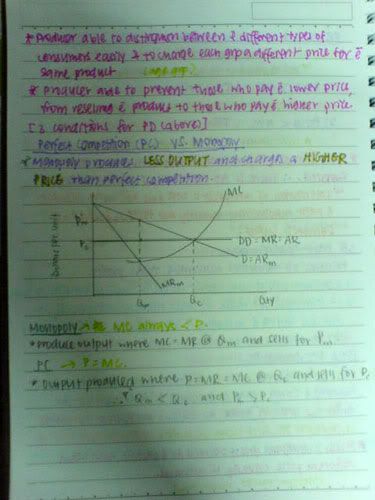 * Producer able to distinguish between ē different types of
consumers easily & to charge each grp a different price for ē
same product (age grp)
* Producer able to prevent those who pay ē lower price,
from reselling ē produce to those who pay ē higher price.
[2 conditions for PD (above)]
Perfect Competition (PC) VS. Monopoly
* Monopoly produces LESS OUTPUT and charges a HIGHER
PRICE than perfect competition.
MC
Pm
Pc
Dollars per unit
DD = MR = AR
D = ARm
MRm
Qm
Qc
Qty
Monopoly → MC always < P.
* produce output where MC = MR @ Qm and sells for Pm
PC → P = MC.
* Output produced where P = MR = MC @ Qc and sells for Pc
∴ Qm < Qc and Pm > Pc